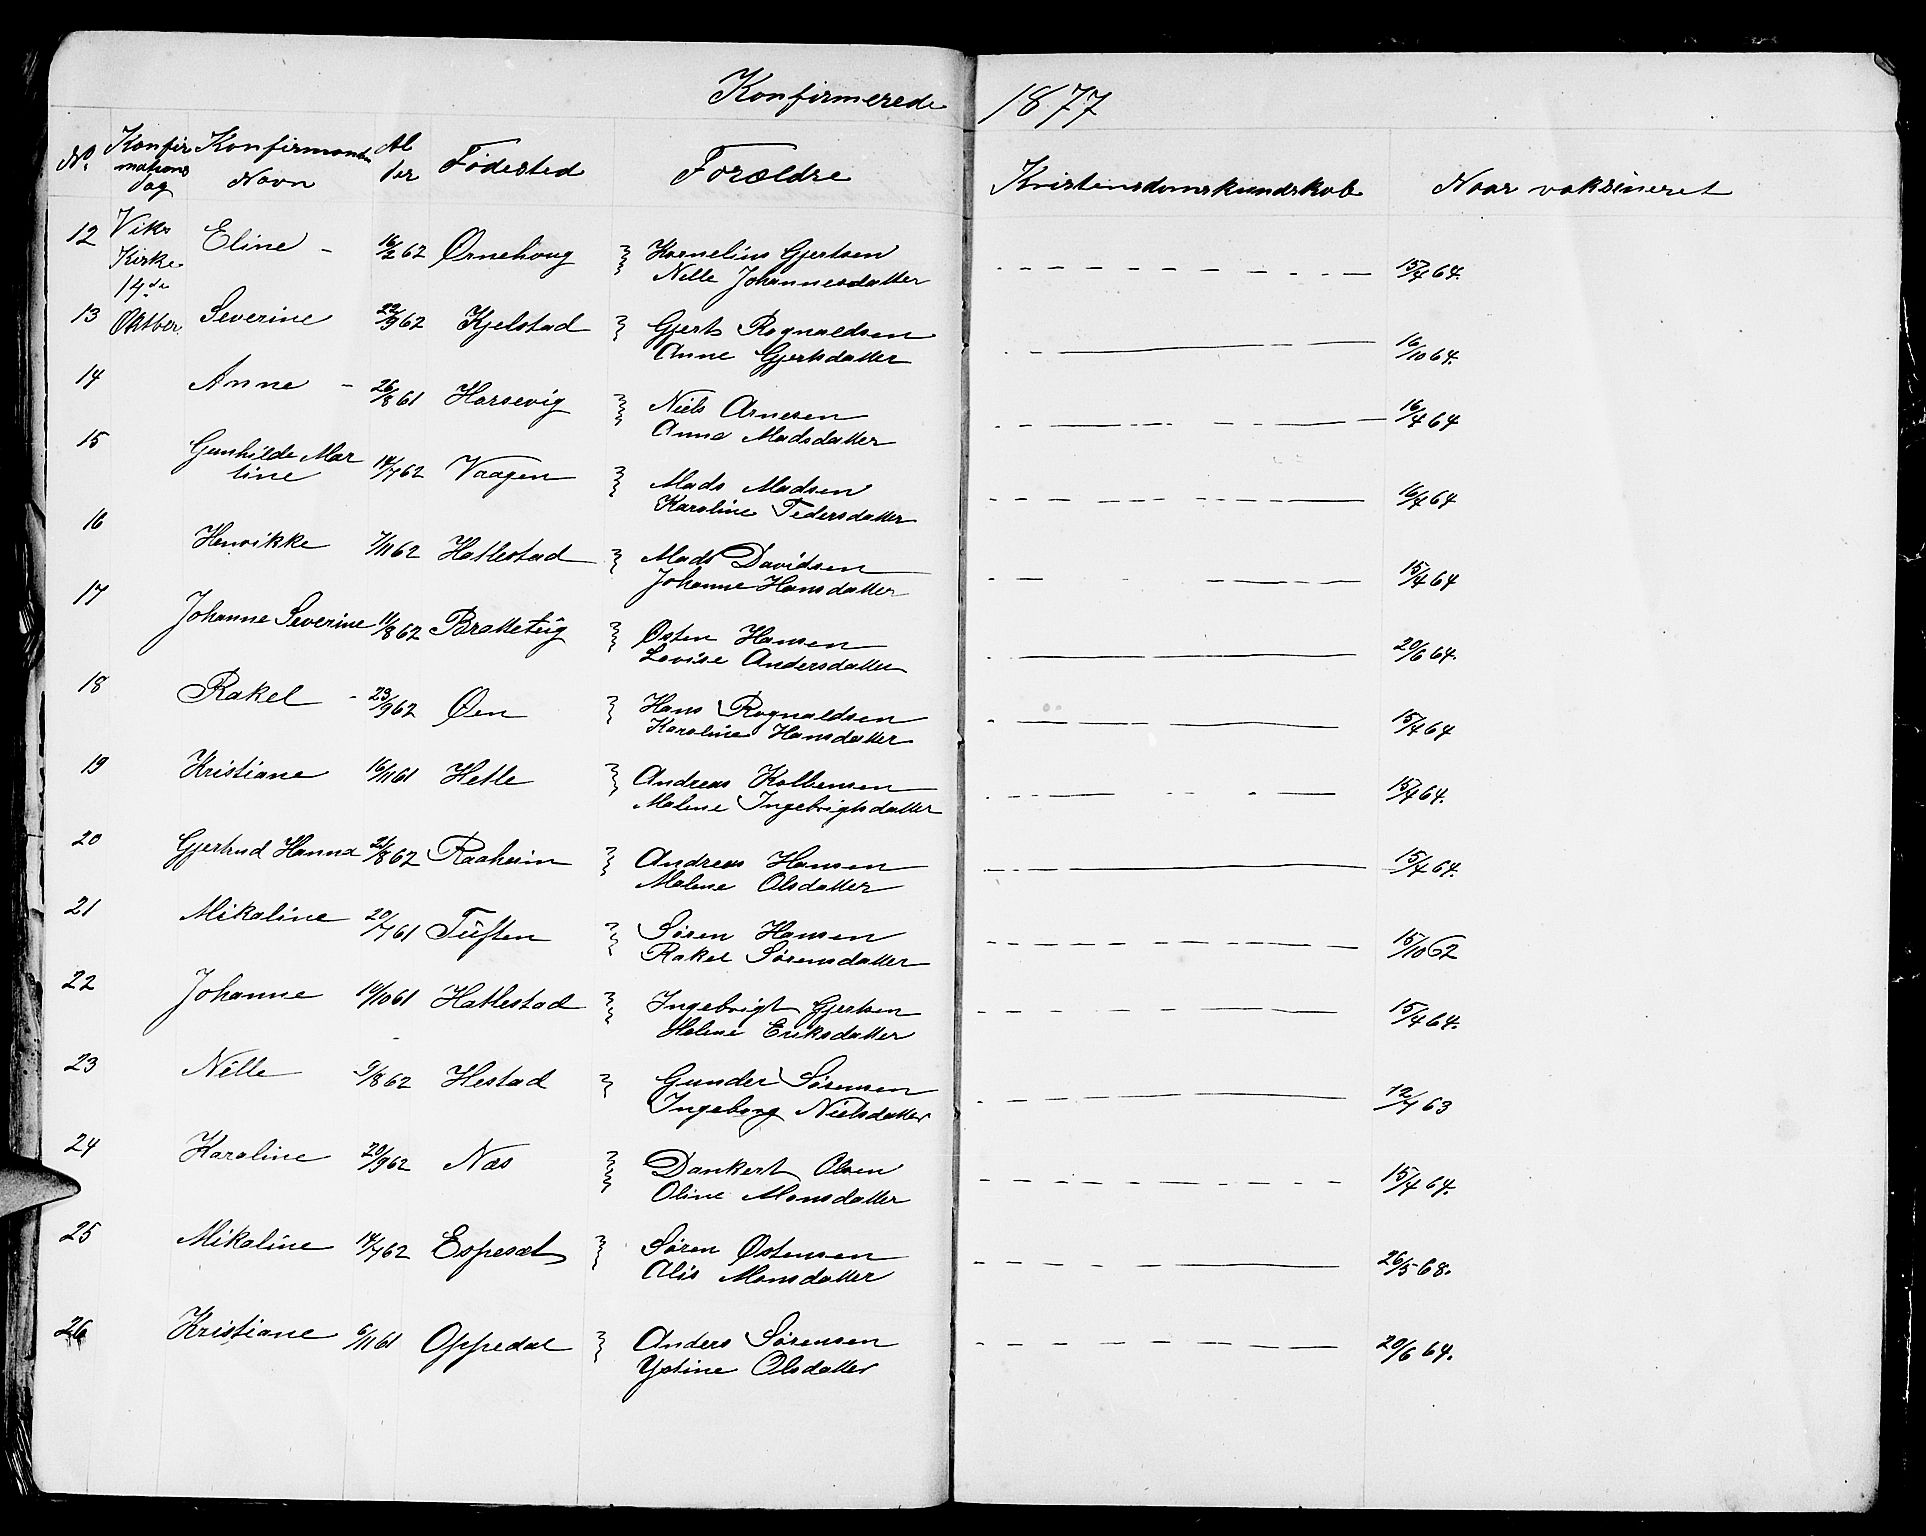 Konfirmerede 1877
No. Konfir Konfirmanten Al Fødested Forældre Kristensdomskundskab Naar vaksineret
mations Navn der
dag
12 Viks Eline - 16/2 62 Ørnehoug Kornelius Gjertsen 15/4 64.
Kirke Nille Johannesdatter
14de
13 Oktber. Severine 22/9 62 Kjelstad Gjert Rognaldsen 16/10 64.
Anne Gjertsdatter
14 Anne - 26/8 61 Horsevig Niels Arnesen 16/4 64
Anna Madsdatter
15 Gunhilde Mar 14/7 62 Vaagen Mads Madsen 16/4 64
tine Karoline Pedersdatter
16 Henrikke 7/11 62 Hatlestad Mads Davidsen 15/4 64
Johanne Hansdatter
17 Johanne Severine 11/8 62 Bratteteig Østen Hansen 20/6 64.
Lovise Andersdatter
18 Rakel - 23/9 62 Øen Hans Rognaldsen 15/4 64
Karoline Hansdatter
19 Kristiane 16/11 61 Hetle Andreas Kolbensen 15/4 64.
Malene Ingebrigtsdatter
20 Gjertrud Hanna 2/8 62 Raaheim Andreas Hansen 15/4 64.
Malene Olsdatter
21 Mikaline 20/7 61 Tuften Søren Hansen 15/10 62
Rakel Sørensdatter
22 Johanne 10/10 61 Hatlestad Ingebrigt Gjertsen 15/4 64.
Helene Eriksdatter
23 Nille 9/8 62 Hestad Gunder Sørensen 12/7 63
Ingeborg Nielsdatter
24 Karoline 20/9 62 Næs Dankert Olsen 15/4 64.
Oline Monsdatter
25 Mikaline 14/7 62 Espesæt Søren Østensen 26/5 68.
Alis Monsdatter
26 Kristiane 6/11 61 Oppedal Anders Sørensen 20/6 64.
Ystine Olsdatter